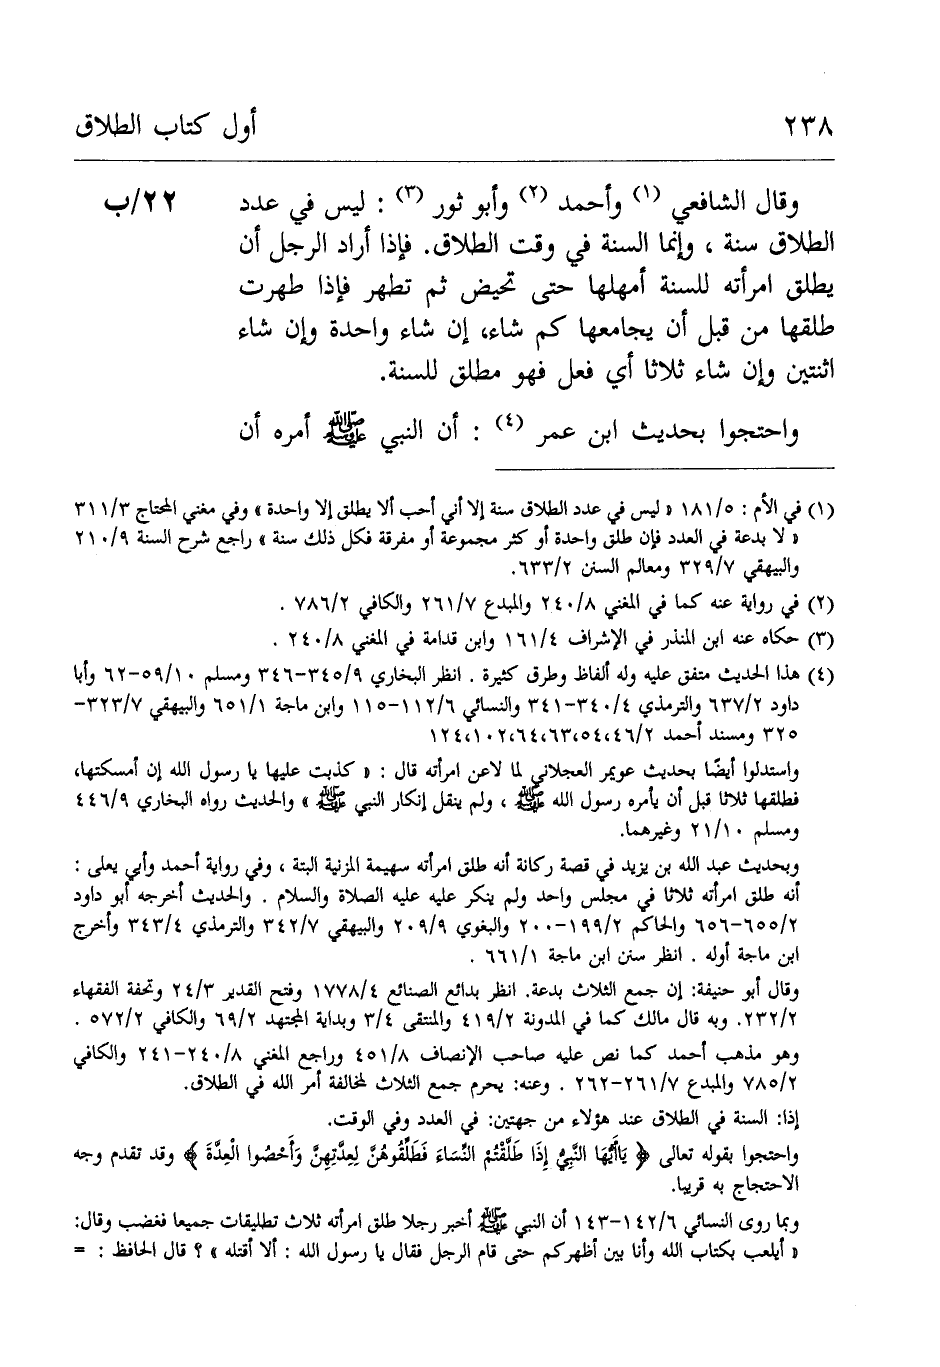 ٢٣٨ أول كتاب الطلاق
وقال الشافعي (١) وأحمد (٢) وأبو ثور (٣) : ليس في عدد ٢٢/ب
الطلاق سنة ، وإنما السنة في وقت الطلاق. فإذا أراد الرجل أن
يطلق امرأته للسنة أمهلها حتى تحيض ثم تطهر فإذا طهرت
طلقها من قبل أن يجامعها كم شاء، إن شاء واحدة وإن شاء
اثنتين وإن شاء ثلاثا أي فعل فهو مطلق للسنة.
واحتجوا بحديث ابن عمر (٤) : أن النبي ﷺ أمره أن
(١) في الأم : ١٨١/٥ « ليس في عدد الطلاق سنة إلا أني أحب ألا يطلق إلا واحدة » وفي مغني المحتاج ٣١١/٣
« لا بدعة في العدد فإن طلق واحدة أو كثر مجموعة أو مفرقة فكل ذلك سنة » راجع شرح السنة ٢١٠/٩
والبيهقي ٣٢٩/٧ ومعالم السنن ٦٣٣/٢.
(٢) في رواية عنه كما في المغني ٢٤٠/٨ والمبدع ٢٦١/٧ والكافي ٧٨٦/٢ .
(٣) حكاه عنه ابن المنذر في الإشراف ١٦١/٤ وابن قدامة في المغني ٢٤٠/٨ .
(٤) هذا الحديث متفق عليه وله ألفاظ وطرق كثيرة . انظر البخاري ٣٤٥/٩-٣٤٦ ومسلم ٥٩/١٠-٦٢ وأبا
داود ٦٣٧/٢ والترمذي ٣٤٠/٤-٣٤١ والنسائي ١١٢/٦-١١٥ وابن ماجة ٦٥١/١ والبيهقي ٣٢٣/٧-
٣٢٥ ومسند أحمد ٤٦/٢،٥٤،٦٣،٦٤،١٠٢،١٢٤
واستدلوا أيضًا بحديث عويمر العجلاني لما لاعن امرأته قال : « كذبت عليها يا رسول الله إن أمسكتها،
فطلقها ثلاثا قبل أن يأمره رسول الله ﷺ ، ولم ينقل إنكار النبي ﷺ » والحديث رواه البخاري ٤٤٦/٩
ومسلم ٢١/١٠ وغيرهما.
وبحديث عبد الله بن يزيد في قصة ركانة أنه طلق امرأته سهيمة المزنية البتة ، وفي رواية أحمد وأبي يعلى :
أنه طلق امرأته ثلاثا في مجلس واحد ولم ينكر عليه عليه الصلاة والسلام . والحديث أخرجه أبو داود
٦٥٥/٢-٦٥٦ والحاكم ١٩٩/٢-٢٠٠ والبغوي ٢٠٩/٩ والبيهقي ٣٤٢/٧ والترمذي ٣٤٣/٤ وأخرج
ابن ماجة أوله . انظر سنن ابن ماجة ٦٦١/١ .
وقال أبو حنيفة: إن جمع الثلاث بدعة. انظر بدائع الصنائع ١٧٧٨/٤ وفتح القدير ٢٤/٣ وتحفة الفقهاء
٢٣٢/٢. وبه قال مالك كما في المدونة ٤١٩/٢ والمنتقى ٣/٤ وبداية المجتهد ٦٩/٢ والكافي ٥٧٢/٢ .
وهو مذهب أحمد كما نص عليه صاحب الإنصاف ٤٥١/٨ وراجع المغني ٢٤٠/٨-٢٤١ والكافي
٧٨٥/٢ والمبدع ٢٦١/٧-٢٦٢ . وعنه: يحرم جمع الثلاث لمخالفة أمر الله في الطلاق.
إذا: السنة في الطلاق عند هؤلاء من جهتين: في العدد وفي الوقت.
واحتجوا بقوله تعالى ﴿ يَاأَيُّهَا النَّبِيُّ إِذَا طَلَّقْتُمُ النِّسَاءَ فَطَلِّقُوهُنَّ لِعِدَّتِهِنَّ وَأَحْصُوا الْعِدَّةَ ﴾ وقد تقدم وجه
الاحتجاج به قريبا.
وبما روى النسائي ١٤٢/٦-١٤٣ أن النبي ﷺ أخبر رجلا طلق امرأته ثلاث تطليقات جميعا فغضب وقال:
« أيلعب بكتاب الله وأنا بين أظهركم حتى قام الرجل فقال يا رسول الله : ألا أقتله » ؟ قال الحافظ : =